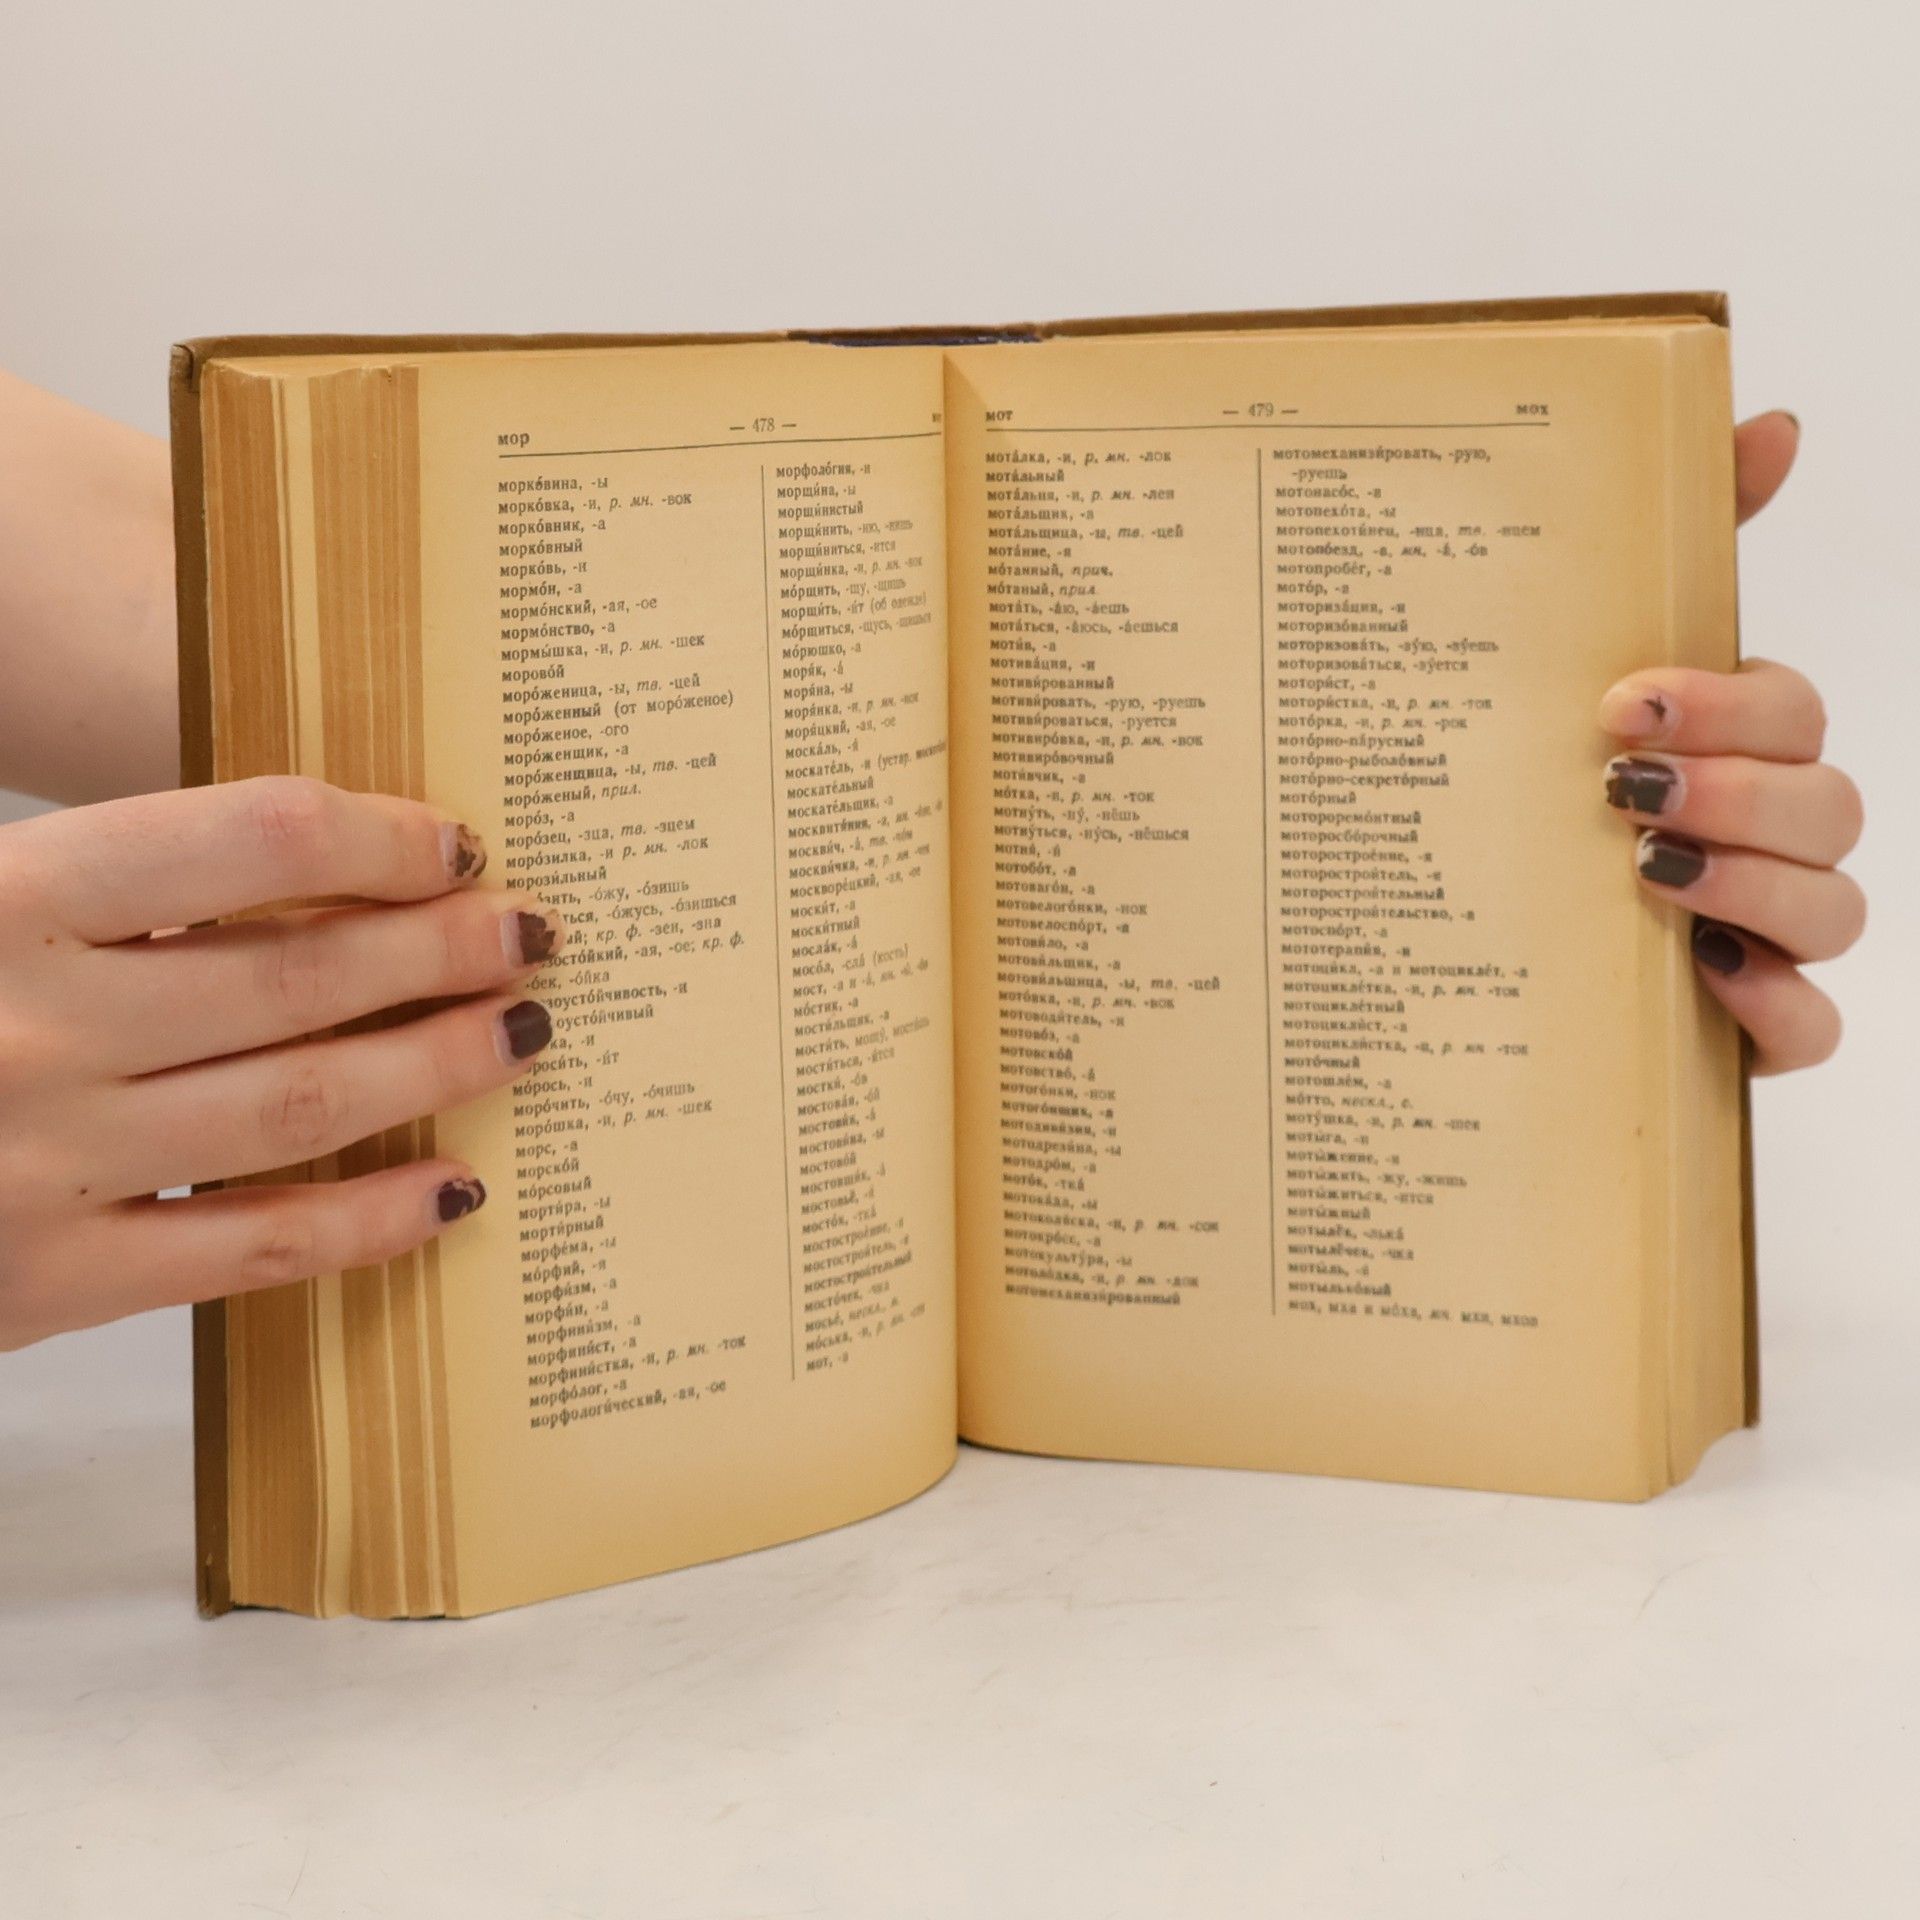 мор
— 478 —
морко́вина, -ы
морко́вка, -и, р. мн. -вок
морко́вник, -а
морко́вный
морко́вь, -и
мормо́н, -а
мормо́нский, -ая, -ое
мормо́нство, -а
мормы́шка, -и, р. мн. -шек
морово́й
моро́женица, -ы, тв. -цей
моро́женный (от моро́женое)
моро́женое, -ого
моро́женщик, -а
моро́женщица, -ы, тв. -цей
моро́женый, прил.
моро́з, -а
моро́зец, -зца, тв. -зцем
морози́лка, -и р. мн. -лок
морози́льный
-о́жу, -о́зишь
-о́жусь, -о́зишься
кр. ф. -зен, -зна
-ая, -ое; кр. ф.
-о́ек, -о́йка
-и
-и
-и́т
мо́рось, -и
моро́чить, -о́чу, -о́чишь
моро́шка, -и, р. мн. -шек
морс, -а
морско́й
мо́рсовый
морти́ра, -ы
морти́рный
морфе́ма, -ы
мо́рфий, -я
морфи́зм, -а
морфи́н, -а
морфини́зм, -а
морфини́ст, -а
морфини́стка, -и, р. мн. -ток
морфо́лог, -а
морфологи́ческий, -ая, -ое
морфоло́гия, -и
морщи́на, -ы
морщи́нистый
морщи́нить, -ню, -нишь
морщи́ниться, -ится
морщи́нка, -и, р. мн. -нок
мо́рщить, -щу, -щишь
морщи́ть, -и́т (об одежде)
мо́рщиться, -щусь, -щишься
мо́рюшко, -а
моря́к, -а́
моря́на, -ы
моря́нка, -и, р. мн. -нок
моря́цкий, -ая, -ое
моска́ль, -я́
москате́ль, -и (устар.
москате́льный
москате́льщик, -а
москвитя́нин, -а, мн.
москви́ч, -а́, тв. -чо́м
москви́чка, -и, р. мн. -чек
москворе́цкий, -ая, -ое
моски́т, -а
моски́тный
мосла́к, -а́
мосо́л, -сла́ (кость)
мост, -а и -а́, мн. -ы́, -о́в
мо́стик, -а
мости́льщик, -а
мости́ть, мощу́, мости́шь
мости́ться, -и́тся
мостки́, -о́в
мостова́я, -о́й
мостови́к, -а́
мостови́на, -ы
мостово́й
мостовщи́к, -а́
мостовьё, -я́
мосто́к, -тка́
мостострое́ние, -я
мостострои́тель, -я
мостострои́тельный
мосто́чек, -чка
мосьё, нескл., м.
мо́ська, -и, р. мн. -сек
мот, -а
мот
— 479 —
мох
мота́лка, -и, р. мн. -лок
мота́льный
мота́льня, -и, р. мн. -лен
мота́льщик, -а
мота́льщица, -ы, тв. -цей
мота́ние, -я
мо́танный, прич.
мо́таный, прил.
мота́ть, -а́ю, -а́ешь
мота́ться, -а́юсь, -а́ешься
моти́в, -а
мотива́ция, -и
мотиви́рованный
мотиви́ровать, -рую, -руешь
мотиви́роваться, -руется
мотивиро́вка, -и, р. мн. -вок
мотивиро́вочный
моти́вчик, -а
мо́тка, -и, р. мн. -ток
мотну́ть, -ну́, -нёшь
мотну́ться, -ну́сь, -нёшься
мотня́, -и́
мотобо́т, -а
мотоваго́н, -а
мотовелого́нки, -нок
мотовелоспо́рт, -а
мотови́ло, -а
мотови́льщик, -а
мотови́льщица, -ы, тв. -цей
мото́вка, -и, р. мн. -вок
мотоводи́тель, -я
мотово́з, -а
мотовско́й
мотовство́, -а́
мотого́нки, -нок
мотого́нщик, -а
мотодиви́зия, -и
мотодрези́на, -ы
мотодро́м, -а
мото́к, -тка́
мотока́да, -ы
мотоколя́ска, -и, р. мн. -сок
мотокро́сс, -а
мотокульту́ра, -ы
мотоло́дка, -и, р. мн. -док
мотомеханизи́рованный
мотомеханизи́ровать, -рую,
-руешь
мотонасо́с, -а
мотопехо́та, -ы
мотопехоти́нец, -нца, тв. -нцем
мотопо́езд, -а, мн. -а́, -о́в
мотопробе́г, -а
мото́р, -а
моториза́ция, -и
моторизо́ванный
моторизова́ть, -зу́ю, -зу́ешь
моторизова́ться, -зу́ется
мотори́ст, -а
мотори́стка, -и, р. мн. -ток
мото́рка, -и, р. мн. -рок
мото́рно-па́русный
мото́рно-рыболо́вный
мото́рно-секрето́рный
мото́рный
ротороремо́нтный
моторосбо́рочный
моторострое́ние, -я
моторострои́тель, -я
моторострои́тельный
моторострои́тельство, -а
мотоспо́рт, -а
мототерапи́я, -и
мотоци́кл, -а и мотоцикле́т, -а
мотоцикле́тка, -и, р. мн. -ток
мотоцикле́тный
мотоцикли́ст, -а
мотоцикли́стка, -и, р. мн. -ток
мото́чный
мотошле́м, -а
мо́тто, нескл., с.
моту́шка, -и, р. мн. -шек
моты́га, -и
моты́жение, -я
моты́жить, -жу, -жишь
моты́житься, -ится
моты́жный
мотылёк, -лька́
мотылёчек, -чка
моты́ль, -я́
мотылько́вый
мох, мха и мо́ха, мн. мхи, мхов